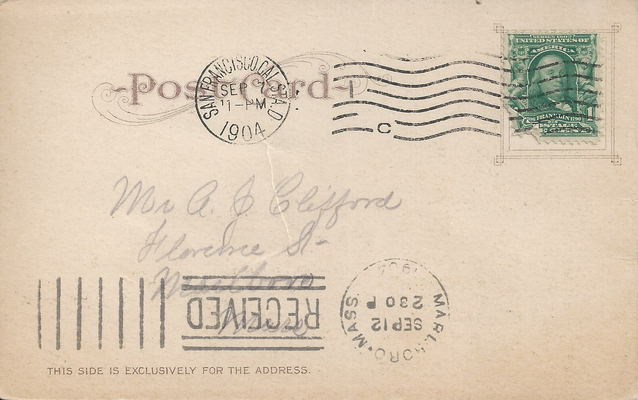 Post Card
SAN FRANCISCO, CAL. STA. D
SEP 7
11-PM
1904
C
SERIES 1902
UNITED STATES OF
AMERICA
FRANKLIN
POSTAGE
Mr A. J. Clifford
Florence St-
Marlboro
Mass
RECEIVED
MARLBORO, MASS
SEP 12
2 30 P
1904
THIS SIDE IS EXCLUSIVELY FOR THE ADDRESS.